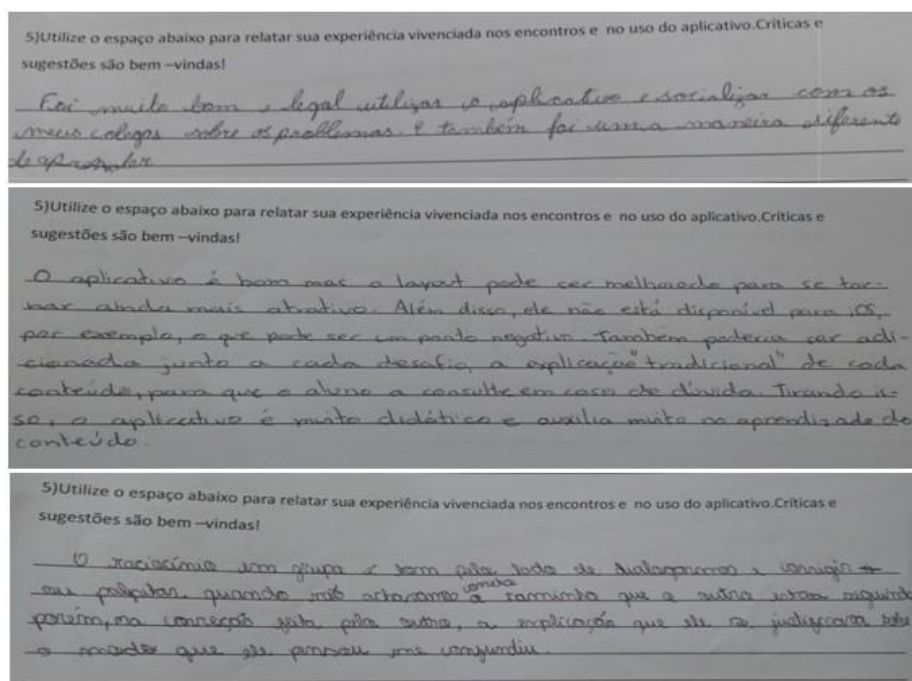 5)Utilize o espaço abaixo para relatar sua experiência vivenciada nos encontros e no uso do aplicativo.Críticas e
sugestões são bem –vindas!
Foi muito bom e legal utilizar o aplicativo e socializar com os
meus colegas sobre os problemas. E também foi uma maneira diferente
de aprender
5)Utilize o espaço abaixo para relatar sua experiência vivenciada nos encontros e no uso do aplicativo.Críticas e
sugestões são bem –vindas!
O aplicativo é bom mas o layout pode ser melhorado para se tor-
nar ainda mais atrativo. Além disso, ele não está disponível para iOS,
por exemplo, o que pode ser um ponto negativo. Também poderia ser adi-
cionada junto a cada desafio, a explicação "tradicional" de cada
conteúdo, para que o aluno a consulte em caso de dúvida. Tirando is-
so, o aplicativo é muito didático e auxilia muito no aprendizado do
conteúdo.
5)Utilize o espaço abaixo para relatar sua experiência vivenciada nos encontros e no uso do aplicativo.Críticas e
sugestões são bem –vindas!
O raciocínio em grupo é bom pelo lado de dialogarmos e corrigir
ou palpitar, quando não achássemos correto o caminho que o outro estava seguindo
porém, na correção feita pelo outro, a explicação que ele se justificava sobre
o modo que ele pensou me confundiu.